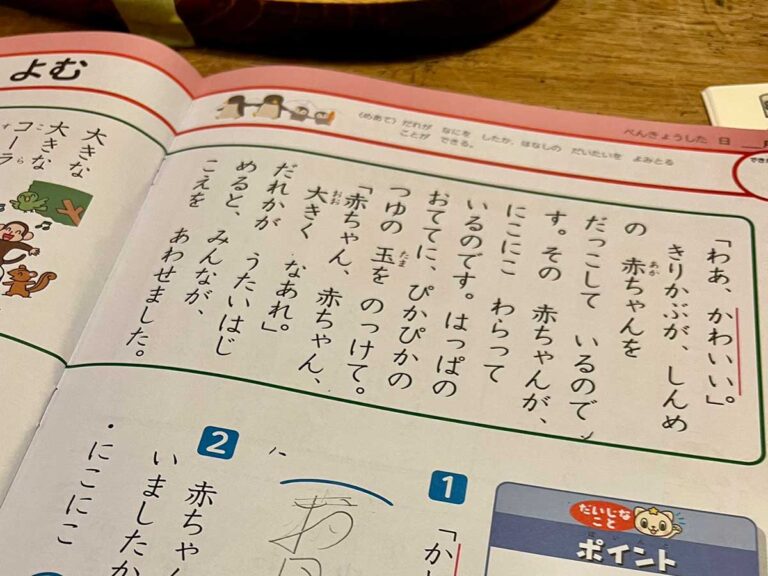 よむ
大きな
大きな
コーラ
こ
す
ら
〈めあて〉だれが なにを したか、はなしの だいたいを よみとる
ことが できる。
べんきょうした 日
でき
「わあ、かわいい」。
きりかぶが、しんめ
の 赤ちゃんを
あか
だっこして いるので
す。その 赤ちゃんが、
にこにこ わらって
いるのです。はっぱの
おててに、ぴかぴかの
つゆの 玉を のっけて。
たま
「赤ちゃん、赤ちゃん、
大きく なあれ。」
おお
だれかが うたいはじ
めると、みんなが、
こえを あわせました。
1
「か
2
赤ちゃ
いましたか
・にこにこ
だいじな
こと
ポイント